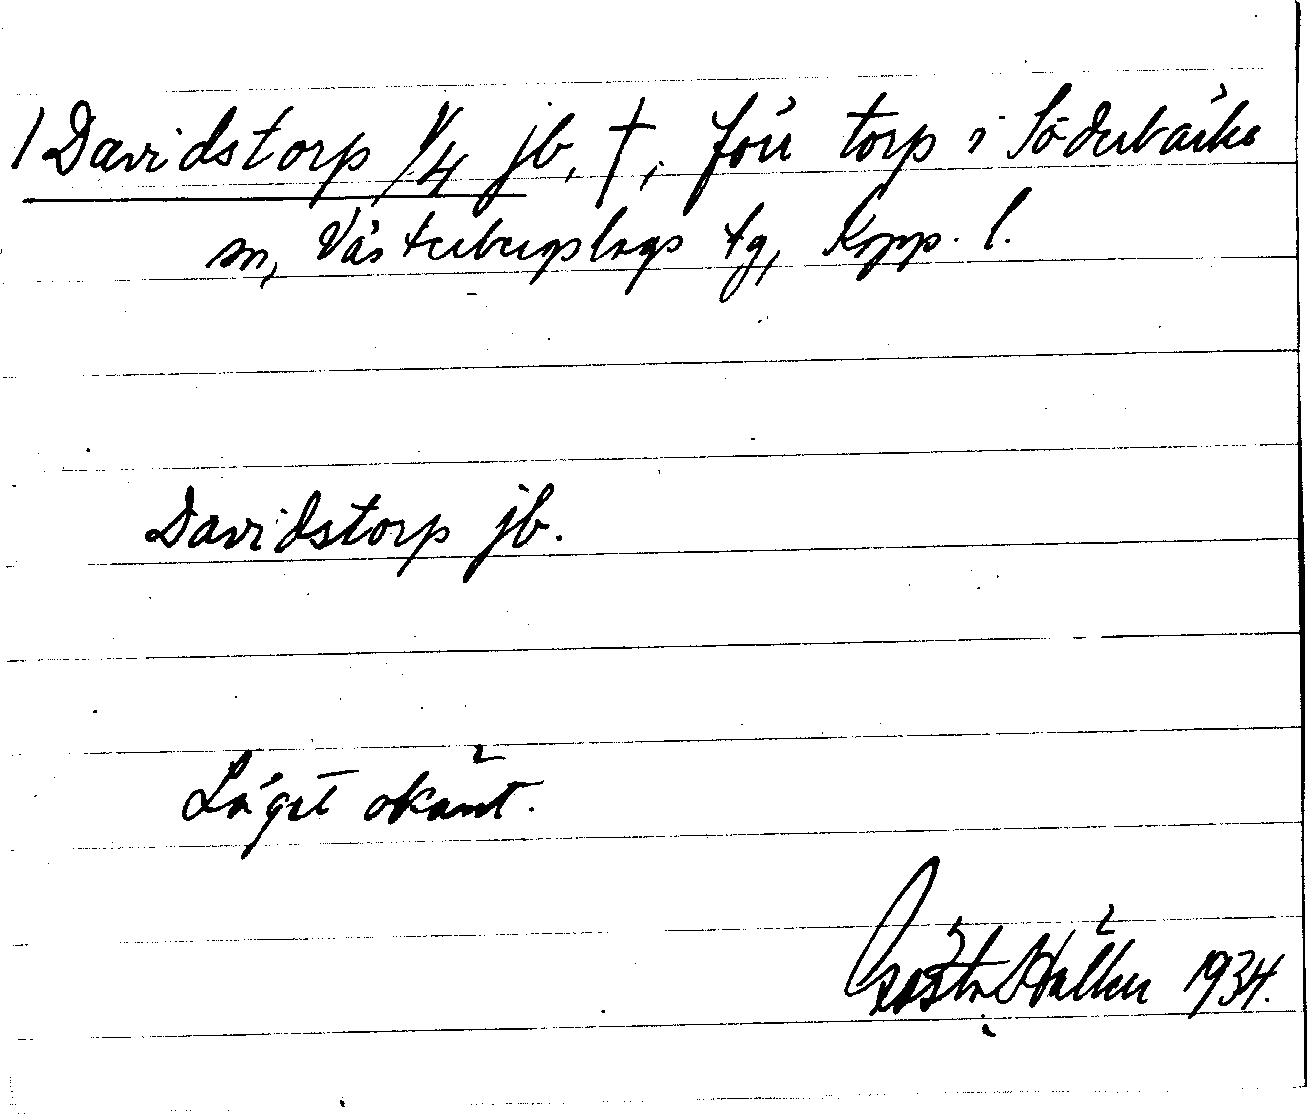 /Davidstorp 1/4 jb, †, förr torp i Söderbärke
sn, Västerbergslags tg, Kopp. l.
Davidstorp jb.
Läget okänt.
Gösta 1934.